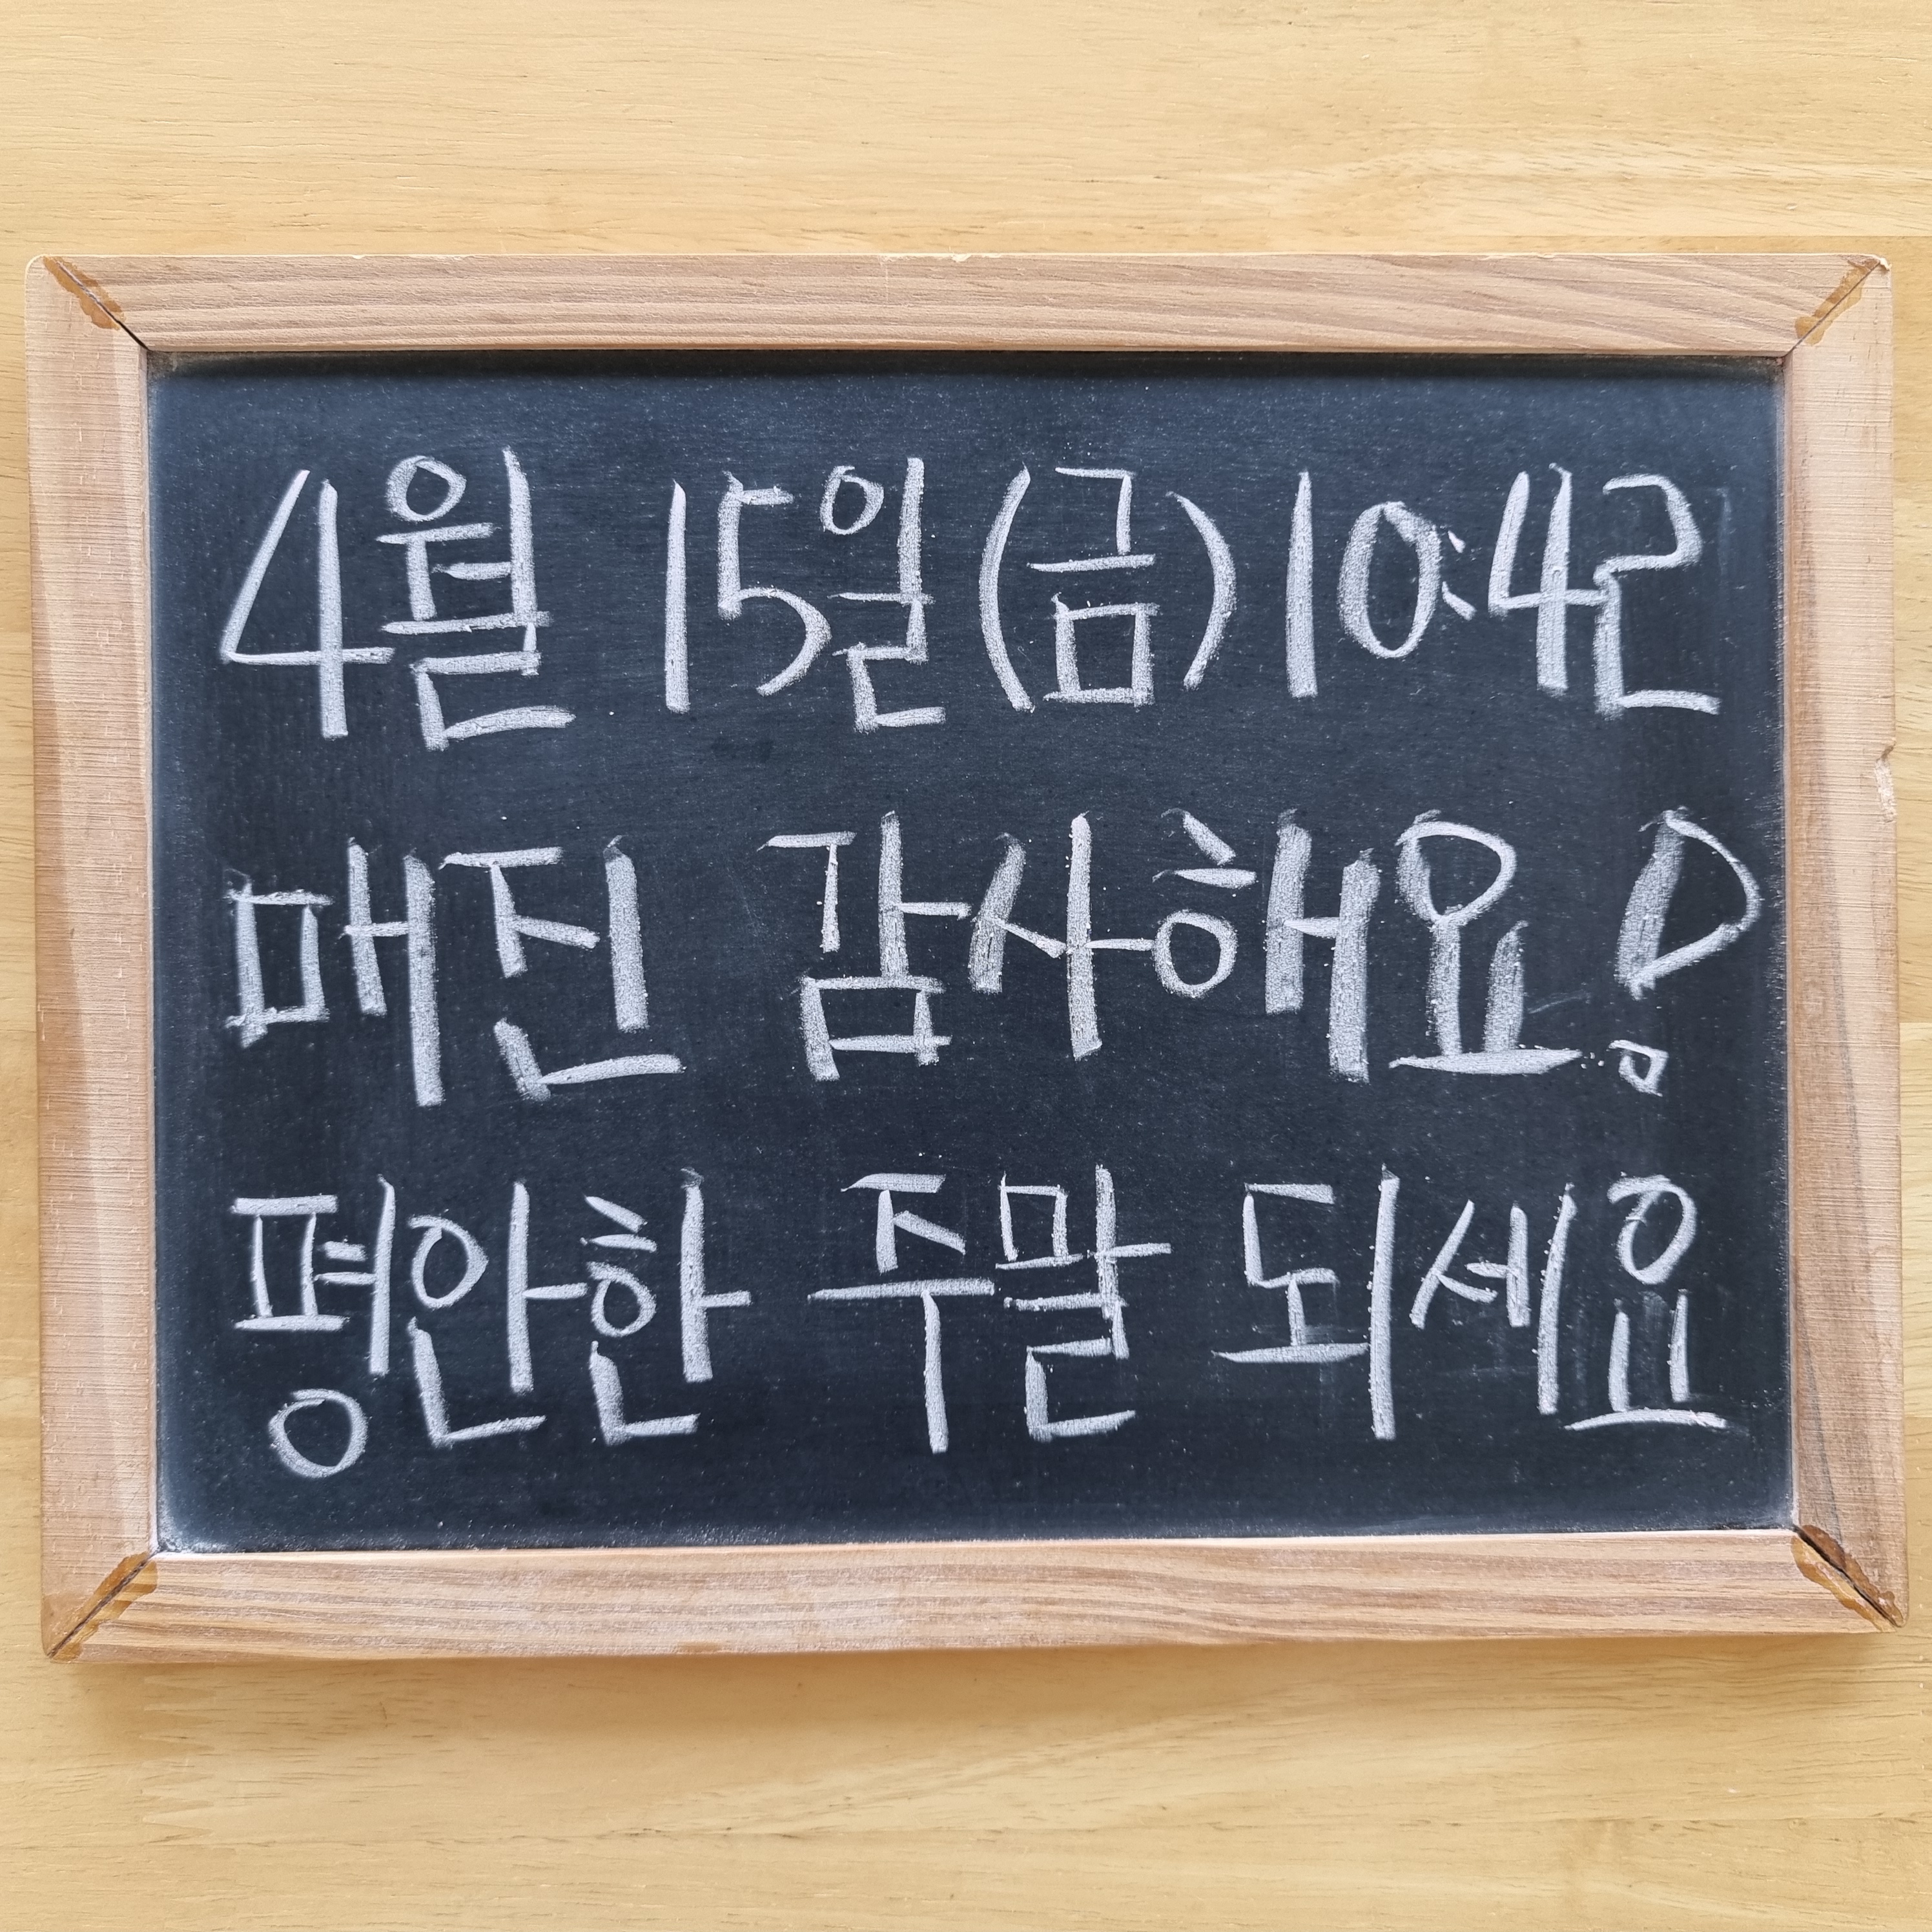 4월 15일(금) 10:42
매진 감사해요!
평안한 주말 되세요